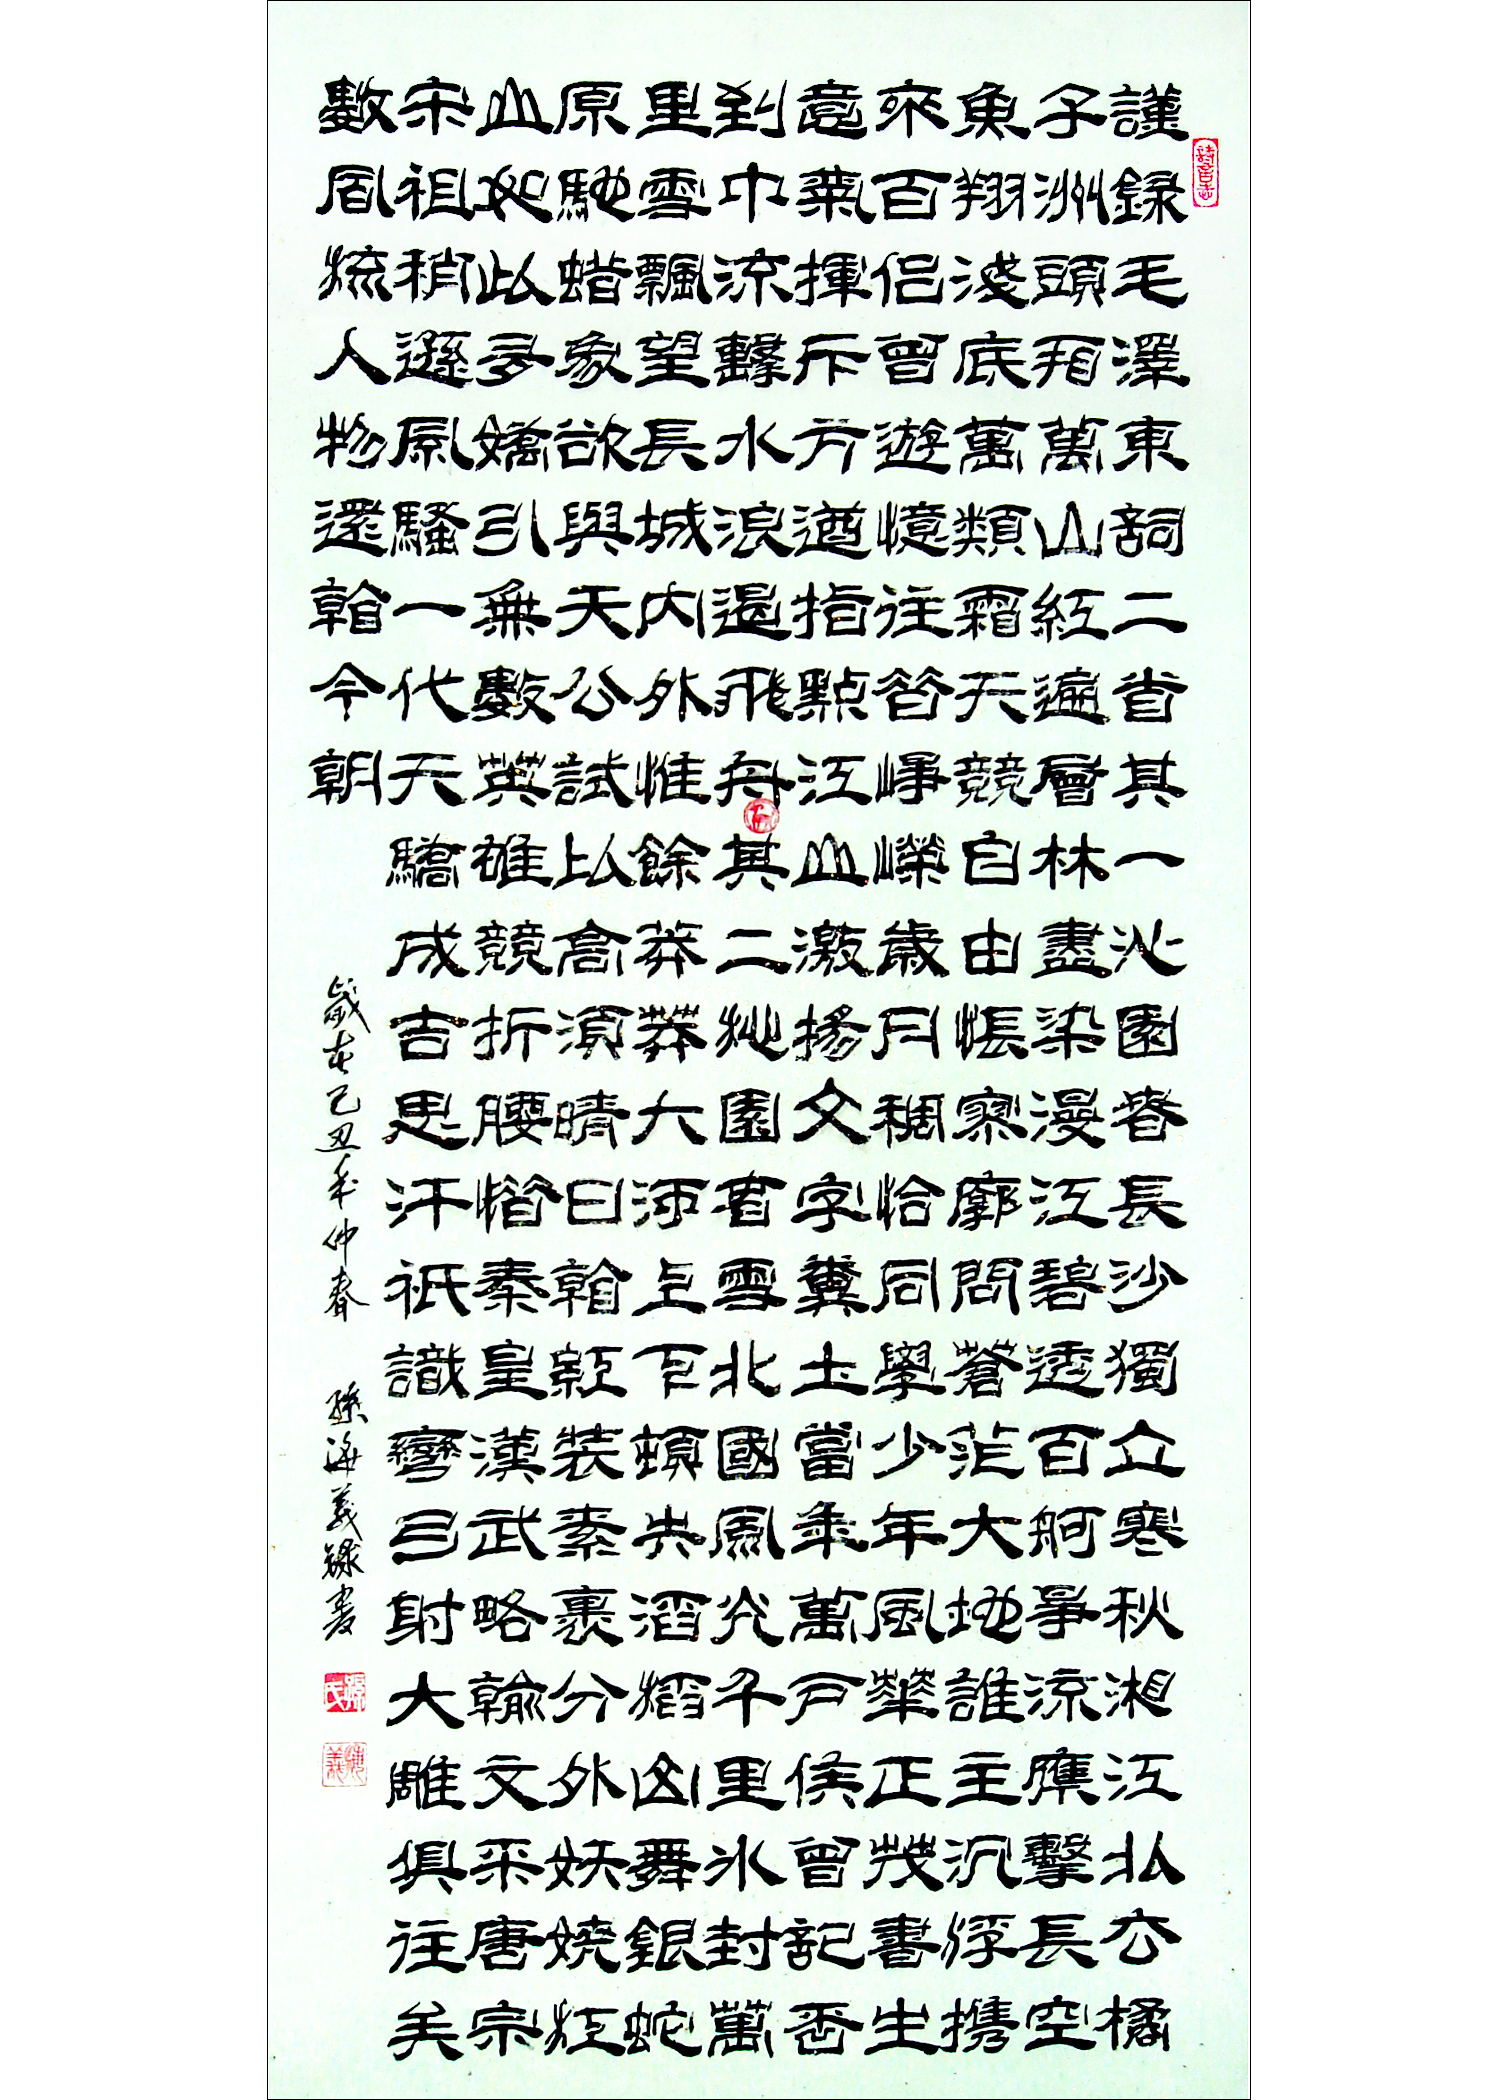 謹録毛澤東詞二首其一沁園春長沙獨立寒秋湘江北去橘
子洲頭看萬山紅遍層林盡染漫江碧透百舸爭流鷹擊長空
魚翔淺底萬類霜天競自由悵寥廓問蒼茫大地誰主沉浮携
來百侶曾遊憶往昔崢嶸歲月稠恰同學少年風華正茂書生
意氣揮斥方遒指點江山激揚文字糞土當年萬戶侯曾記否
到中流擊水浪遏飛舟其二沁園春雪北國風光千里冰封萬
里雪飄望長城内外惟餘莽莽大河上下頓失滔滔山舞銀蛇
原馳蜡象欲與天公試比高須晴日看紅裝素裹分外妖嬈江
山如此多嬌引無數英雄競折腰惜秦皇漢武略輸文采唐宗
宋祖稍遜風騷一代天驕成吉思汗祇識彎弓射大雕俱往矣
數風流人物還看今朝
歲在己丑年仲春 孫海義録書
詩言志
孫氏
海義